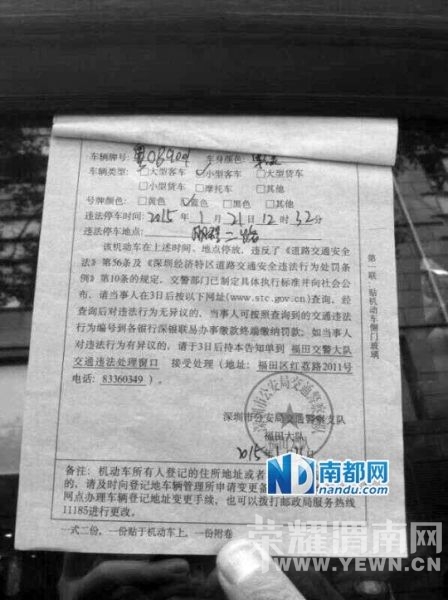 车辆牌号： 车身颜色：
车辆类型：□大型客车 □小型客车 □大型货车
□小型货车 □摩托车 □其他
号牌颜色：□黄色 □蓝色 □黑色 □其他
违法停车时间：2015年1月21日12时32分
违法停车地点： 二路
该机动车在上述时间、地点停放，违反了《道路交通安全
法》第56条及《深圳经济特区道路交通安全违法行为处罚条
例》第10条的规定，交警部门已制定具体执行标准并向社会公
布，请当事人在3日后按以下网址(www.stc.gov.cn)查询，经
查询后对违法行为无异议的，当事人可按照查询到的交通违法
行为编号到各银行深银联易办事缴款终端缴纳罚款；如当事人
对违法行为有异议的，请于3日后持本告知单到 福田交警大队
交通违法处理窗口 接受处理（地址：福田区红荔路2011号
电话：83360349）。
第一联 贴机动车侧门玻璃
深圳市公安局交通警察支队
福田大队
2015年1月21日
深圳市公安局交通警察支队
备注：机动车所有人登记的住所地址或者
的，请及时向登记地车辆管理所申请变更备
网点办理车辆登记地址变更手续，也可以拨打邮政局服务热线
11185进行更改。
一式二份，一份贴于机动车上，一份附卷
ND 南都网
nandu.com
荣耀渭南网
WWW.YEWN.CN